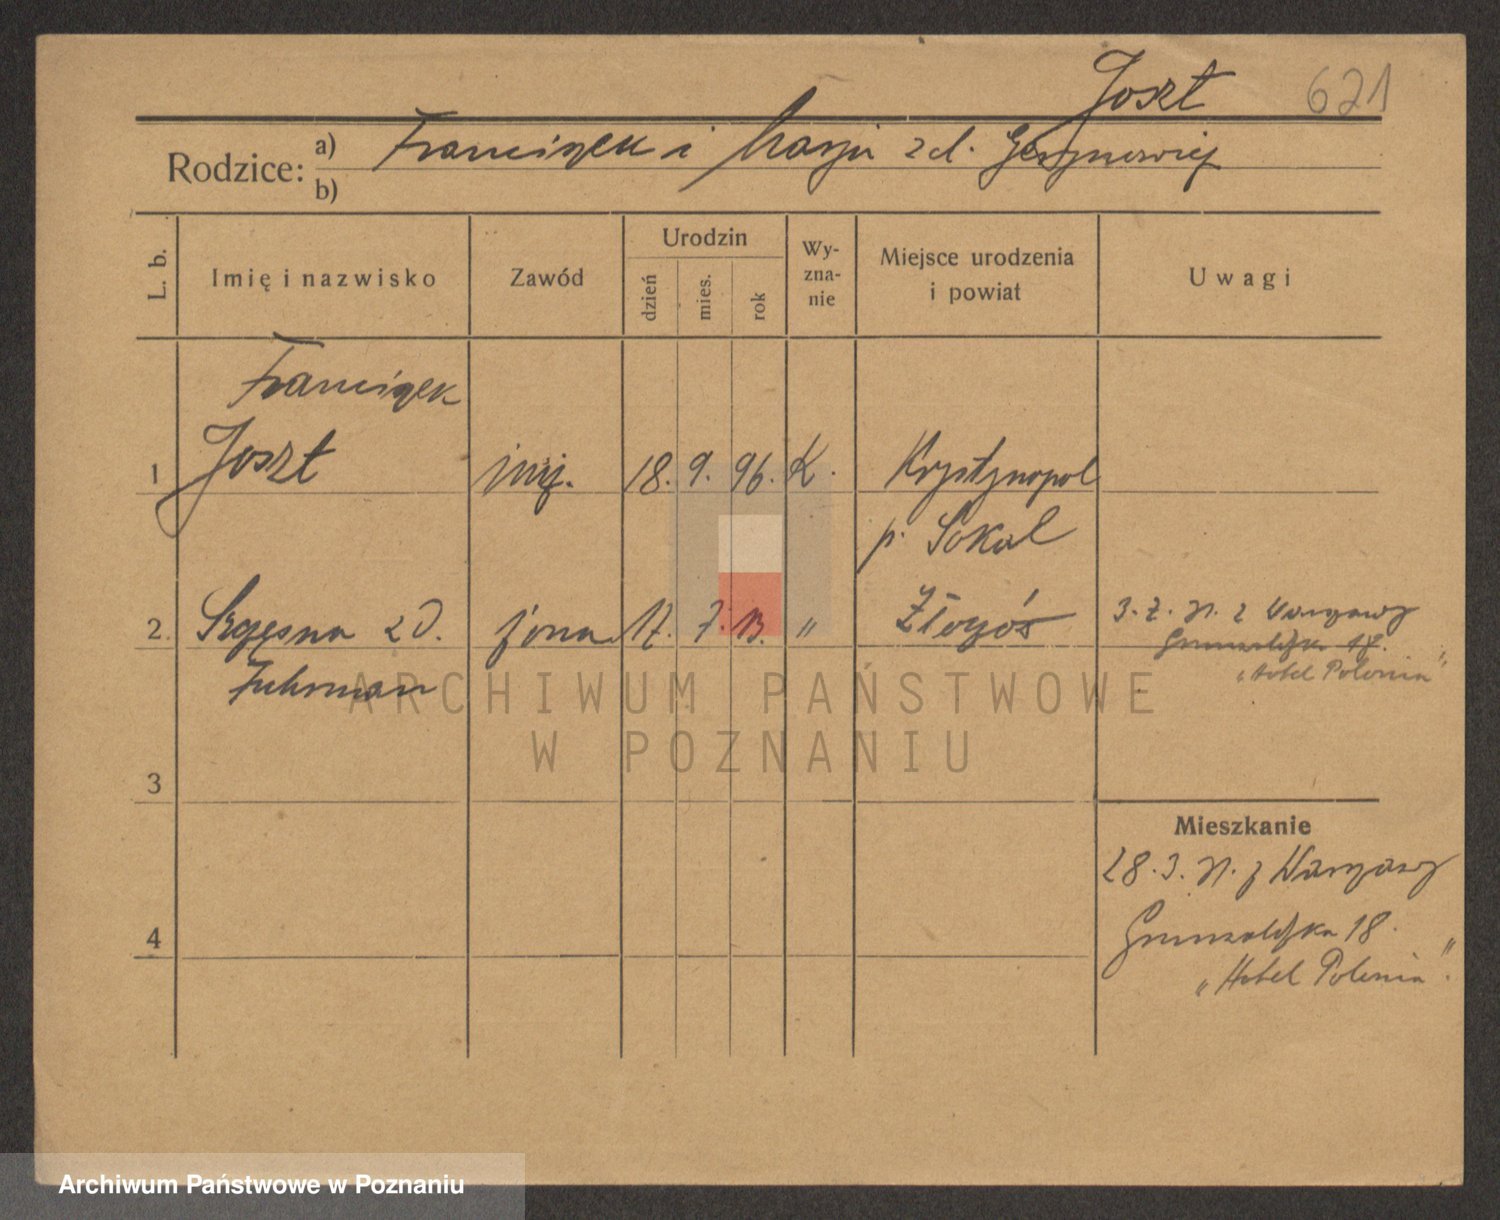 Joszt 621
Rodzice: a) Franciszek i Marja z d.
b)
L. b. Imię i nazwisko Zawód Urodzin dzień mies. rok Wy-zna-nie Miejsce urodzenia i powiat Uwagi
Franciszek
1 Joszt inż. 18. 9. 96. K. Krystynopol
p. Sokal
2. Szczęsna z d. żona 17. 7. 13. " 3. 7. z Warszawy
Fuhrman Grunwaldzka 18.
"Hotel Polonia"
ARCHIWUM PAŃSTWOWE
W POZNANIU
3
Mieszkanie
28. 3. z Warszawy
4 Grunwaldzka 18.
"Hotel Polonia".
Archiwum Państwowe w Poznaniu